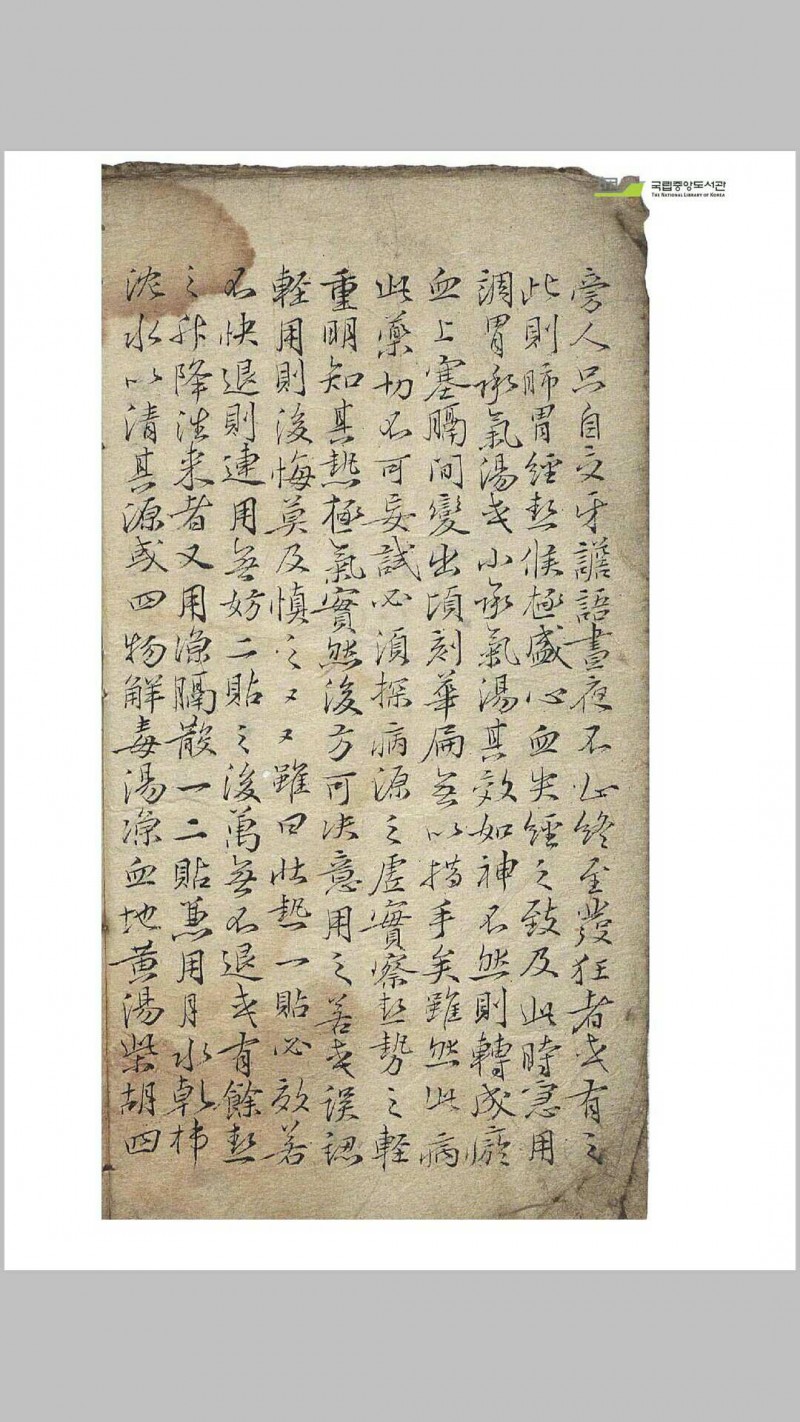 국립중앙도서관
THE NATIONAL LIBRARY OF KOREA
旁人只自交牙譫語晝夜不止終至發狂者或有之
此則肺胃經熱候極盛心血失經之致及此時急用
調胃承氣湯或小承氣湯其效如神不然則轉成癥
血上塞膈間變出頃刻華扁無以措手矣雖然此病
此藥切不可妄試必須探病源之虛實察熱勢之輕
重明知其熱極氣實然後方可决意用之若或誤認
輕用則後悔莫及慎之又又雖曰壮熱一貼必效若
不快退則連用無妨二貼之後萬無不退或有餘熱
之升降徃来者又用凉膈散一二貼兼用月水乾柿
沈水以清其源或四物解毒湯凉血地黄湯柴胡四